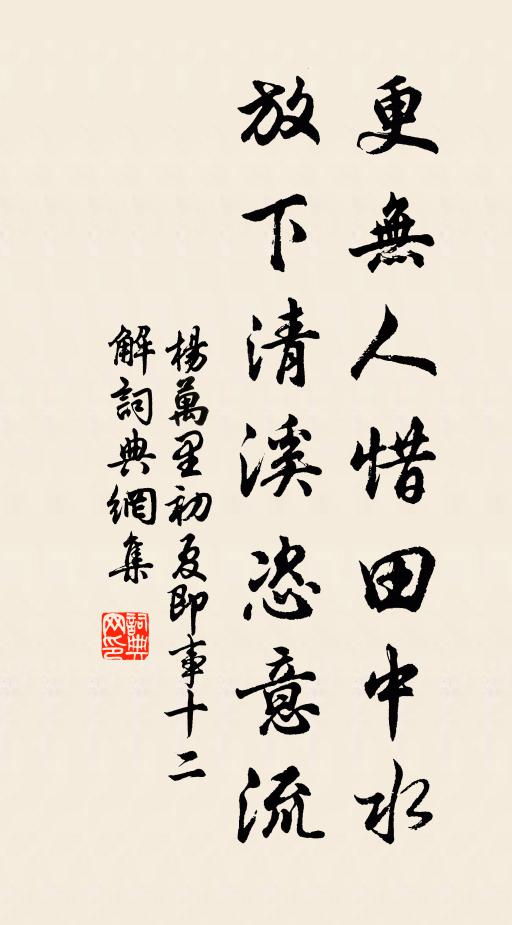 更無人惜田中水
放下清溪恣意流
楊萬里初夏即事十二
解詞典網集
詞典
网印